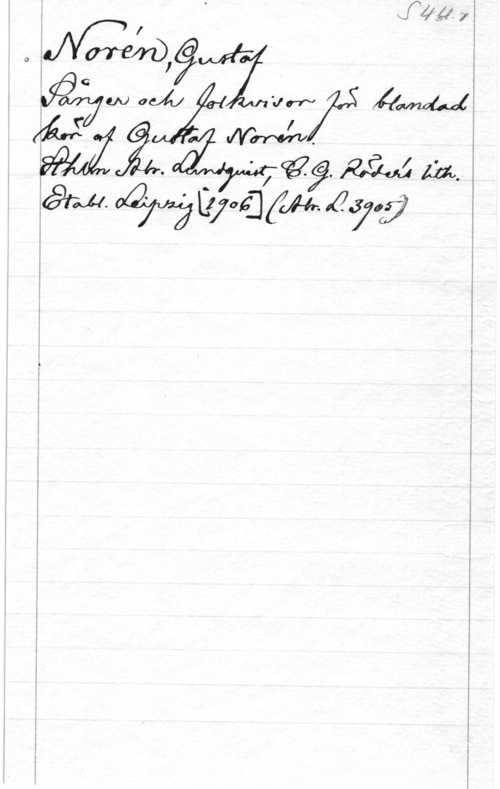 Norén, Gustaf
Sånger och folkvisor för blandad
kör af Gustaf Norén.
Sthlm Abr. Lundquist, C. G. Röder's lith.
Etabl. Leipzig [1906] (Abr. L. 3905)